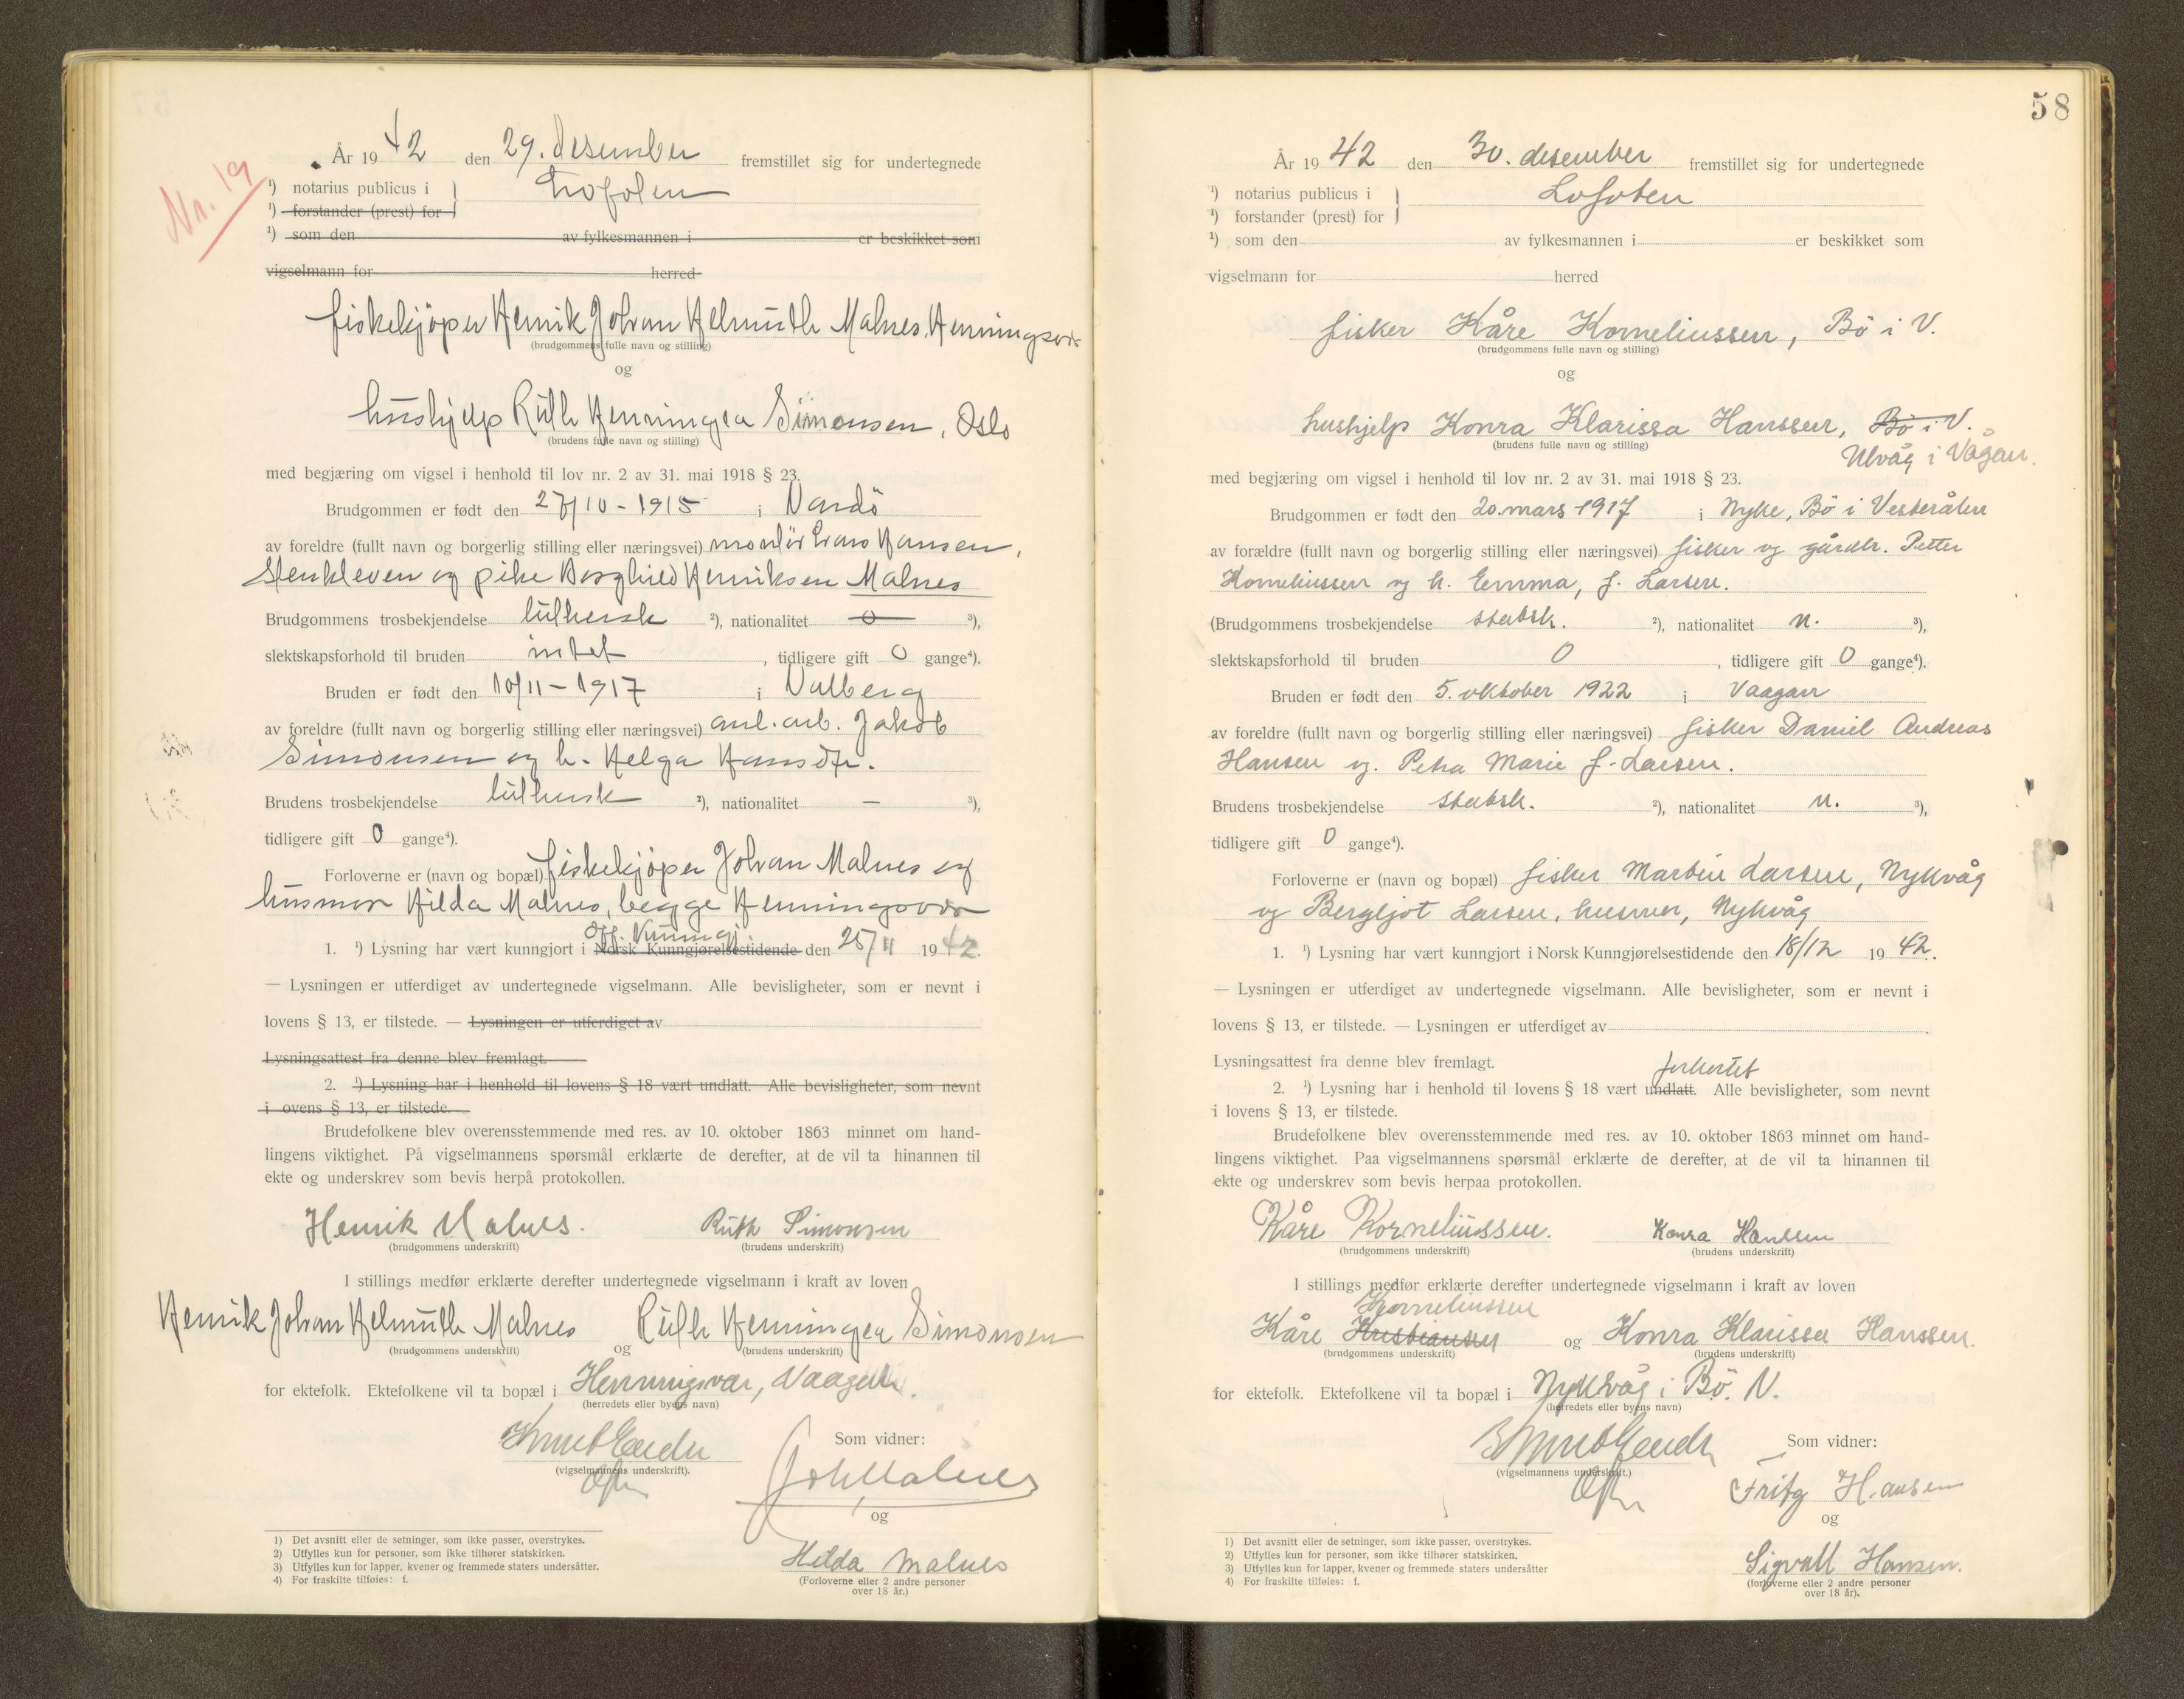 Nr. 19
År 1942 den 29. desember fremstillet sig for undertegnede
¹) notarius publicus i } Lofoten
¹) forstander (prest) for }
¹) som den av fylkesmannen i er beskikket som
vigselmann for herred
fiskekjöper Henrik Johan Helmuth Malnes, Henningsvær
(brudgommens fulle navn og stilling)
og
hushjelp Ruth Henningea Simonsen, Oslo
(brudens fulle navn og stilling)
med begjæring om vigsel i henhold til lov nr. 2 av 31. mai 1918 § 23.
Brudgommen er født den 27/10 - 1915 i Vardö
av foreldre (fullt navn og borgerlig stilling eller næringsvei) montör Hans Hansen,
Stenkleven og pike Borghild Henriksen Malnes
Brudgommens trosbekjendelse luthersk ²), nationalitet ³),
slektskapsforhold til bruden intet, tidligere gift 0 gange⁴).
Bruden er født den 10/11 - 1917 i Valberg
av foreldre (fullt navn og borgerlig stilling eller næringsvei) anl. arb. Jakob
Simonsen og h. Helga Hansdtr.
Brudens trosbekjendelse luthersk ²), nationalitet — ³),
tidligere gift 0 gange⁴).
Forloverne er (navn og bopæl) fiskekjöper Johan Malnes og
husmor Hilda Malnes, begge Henningsvær
Off. Kunngj.
1. ¹) Lysning har vært kunngjort i Norsk Kunngjørelsestidende den 25/11 1942.
— Lysningen er utferdiget av undertegnede vigselmann. Alle bevisligheter, som er nevnt i
lovens § 13, er tilstede. — Lysningen er utferdiget av
Lysningsattest fra denne blev fremlagt.
2. ¹) Lysning har i henhold til lovens § 18 vært undlatt. Alle bevisligheter, som nevnt
i ovens § 13, er tilstede.
Brudefolkene blev overensstemmende med res. av 10. oktober 1863 minnet om hand-
lingens viktighet. På vigselmannens spørsmål erklærte de derefter, at de vil ta hinannen til
ekte og underskrev som bevis herpå protokollen.
Henrik Malnes. Ruth Simonsen
(brudgommens underskrift) (brudens underskrift)
I stillings medfør erklærte derefter undertegnede vigselmann i kraft av loven
Henrik Johan Helmuth Malnes og Ruth Henningea Simonsen
(brudgommens underskrift) (brudens underskrift)
for ektefolk. Ektefolkene vil ta bopæl i Henningsvær, Vaagan.
(herredets eller byens navn)
Som vidner:
(vigselmannens underskrift).
Joh Malnes
og
Hilda Malnes
(Forloverne eller 2 andre personer
over 18 år.)
1) Det avsnitt eller de setninger, som ikke passer, overstrykes.
2) Utfylles kun for personer, som ikke tilhører statskirken.
3) Utfylles kun for lapper, kvener og fremmede staters undersåtter.
4) For fraskilte tilføies: f.
58
År 1942 den 30. desember fremstillet sig for undertegnede
¹) notarius publicus i } Lofoten
¹) forstander (prest) for }
¹) som den av fylkesmannen i er beskikket som
vigselmann for herred
fisker Kåre Korneliussen, Bö i V.
(brudgommens fulle navn og stilling)
og
hushjelp Konra Klarissa Hanssen, Bö i V.
(brudens fulle navn og stilling)
Ulvåg i Vågan.
med begjæring om vigsel i henhold til lov nr. 2 av 31. mai 1918 § 23.
Brudgommen er født den 20. mars 1917 i Nyke, Bö i Vesterålen
av forældre (fullt navn og borgerlig stilling eller næringsvei) fisker og gårdbr. Petter
Korneliussen og h. Emma, f. Larsen.
(Brudgommens trosbekjendelse statsk. ²), nationalitet n. ³),
slektskapsforhold til bruden 0, tidligere gift 0 gange⁴).
Bruden er født den 5. oktober 1922 i Vaagan
av foreldre (fullt navn og borgerlig stilling eller næringsvei) fisker Daniel Andreas
Hansen og. Petra Marie f. Larsen.
Brudens trosbekjendelse statsk. ²), nationalitet n. ³),
tidligere gift 0 gange⁴).
Forloverne er (navn og bopæl) fisker Martin Larsen, Nykvåg
og Bergljot Larsen, husmor, Nykvåg
1. ¹) Lysning har vært kunngjort i Norsk Kunngjørelsestidende den 18/12 1942.
— Lysningen er utferdiget av undertegnede vigselmann. Alle bevisligheter, som er nevnt i
lovens § 13, er tilstede. — Lysningen er utferdiget av .
Lysningsattest fra denne blev fremlagt.
forkortet
2. ¹) Lysning har i henhold til lovens § 18 vært undlatt. Alle bevisligheter, som nevnt
i lovens § 13, er tilstede.
Brudefolkene blev overensstemmende med res. av 10. oktober 1863 minnet om hand-
lingens viktighet. Paa vigselmannens spørsmål erklærte de derefter, at de vil ta hinannen til
ekte og underskrev som bevis herpaa protokollen.
Kåre Korneliussen. Konra Hanssen
(brudgommens underskrift) (brudens underskrift)
I stillings medfør erklærte derefter undertegnede vigselmann i kraft av loven
Korneliussen
Kåre Kristiansen og Konra Klarissa Hanssen.
(brudgommens underskrift) (brudens underskrift)
for ektefolk. Ektefolkene vil ta bopæl i Nykvåg i Bö. V.
(herredets eller byens navn)
Som vidner:
(vigselmannens underskrift.)
Fritz Hansen
og
Sigvall Hansen.
(forloverne eller 2 andre personer
over 18 år).
1) Det avsnitt eller de setninger, som ikke passer, overstrykes.
2) Utfylles kun for personer, som ikke tilhører statskirken.
3) Utfylles kun for lapper, kvener og fremmede staters undersåtter
4) For fraskilte tilføies: f.